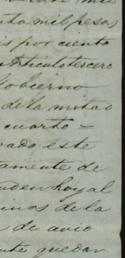 mil pesos
por ciento
Articulo tercero
Gobierno
de la mitad
cuarto =
este
amente de
den hoy al
inos de la
de avio
quedan